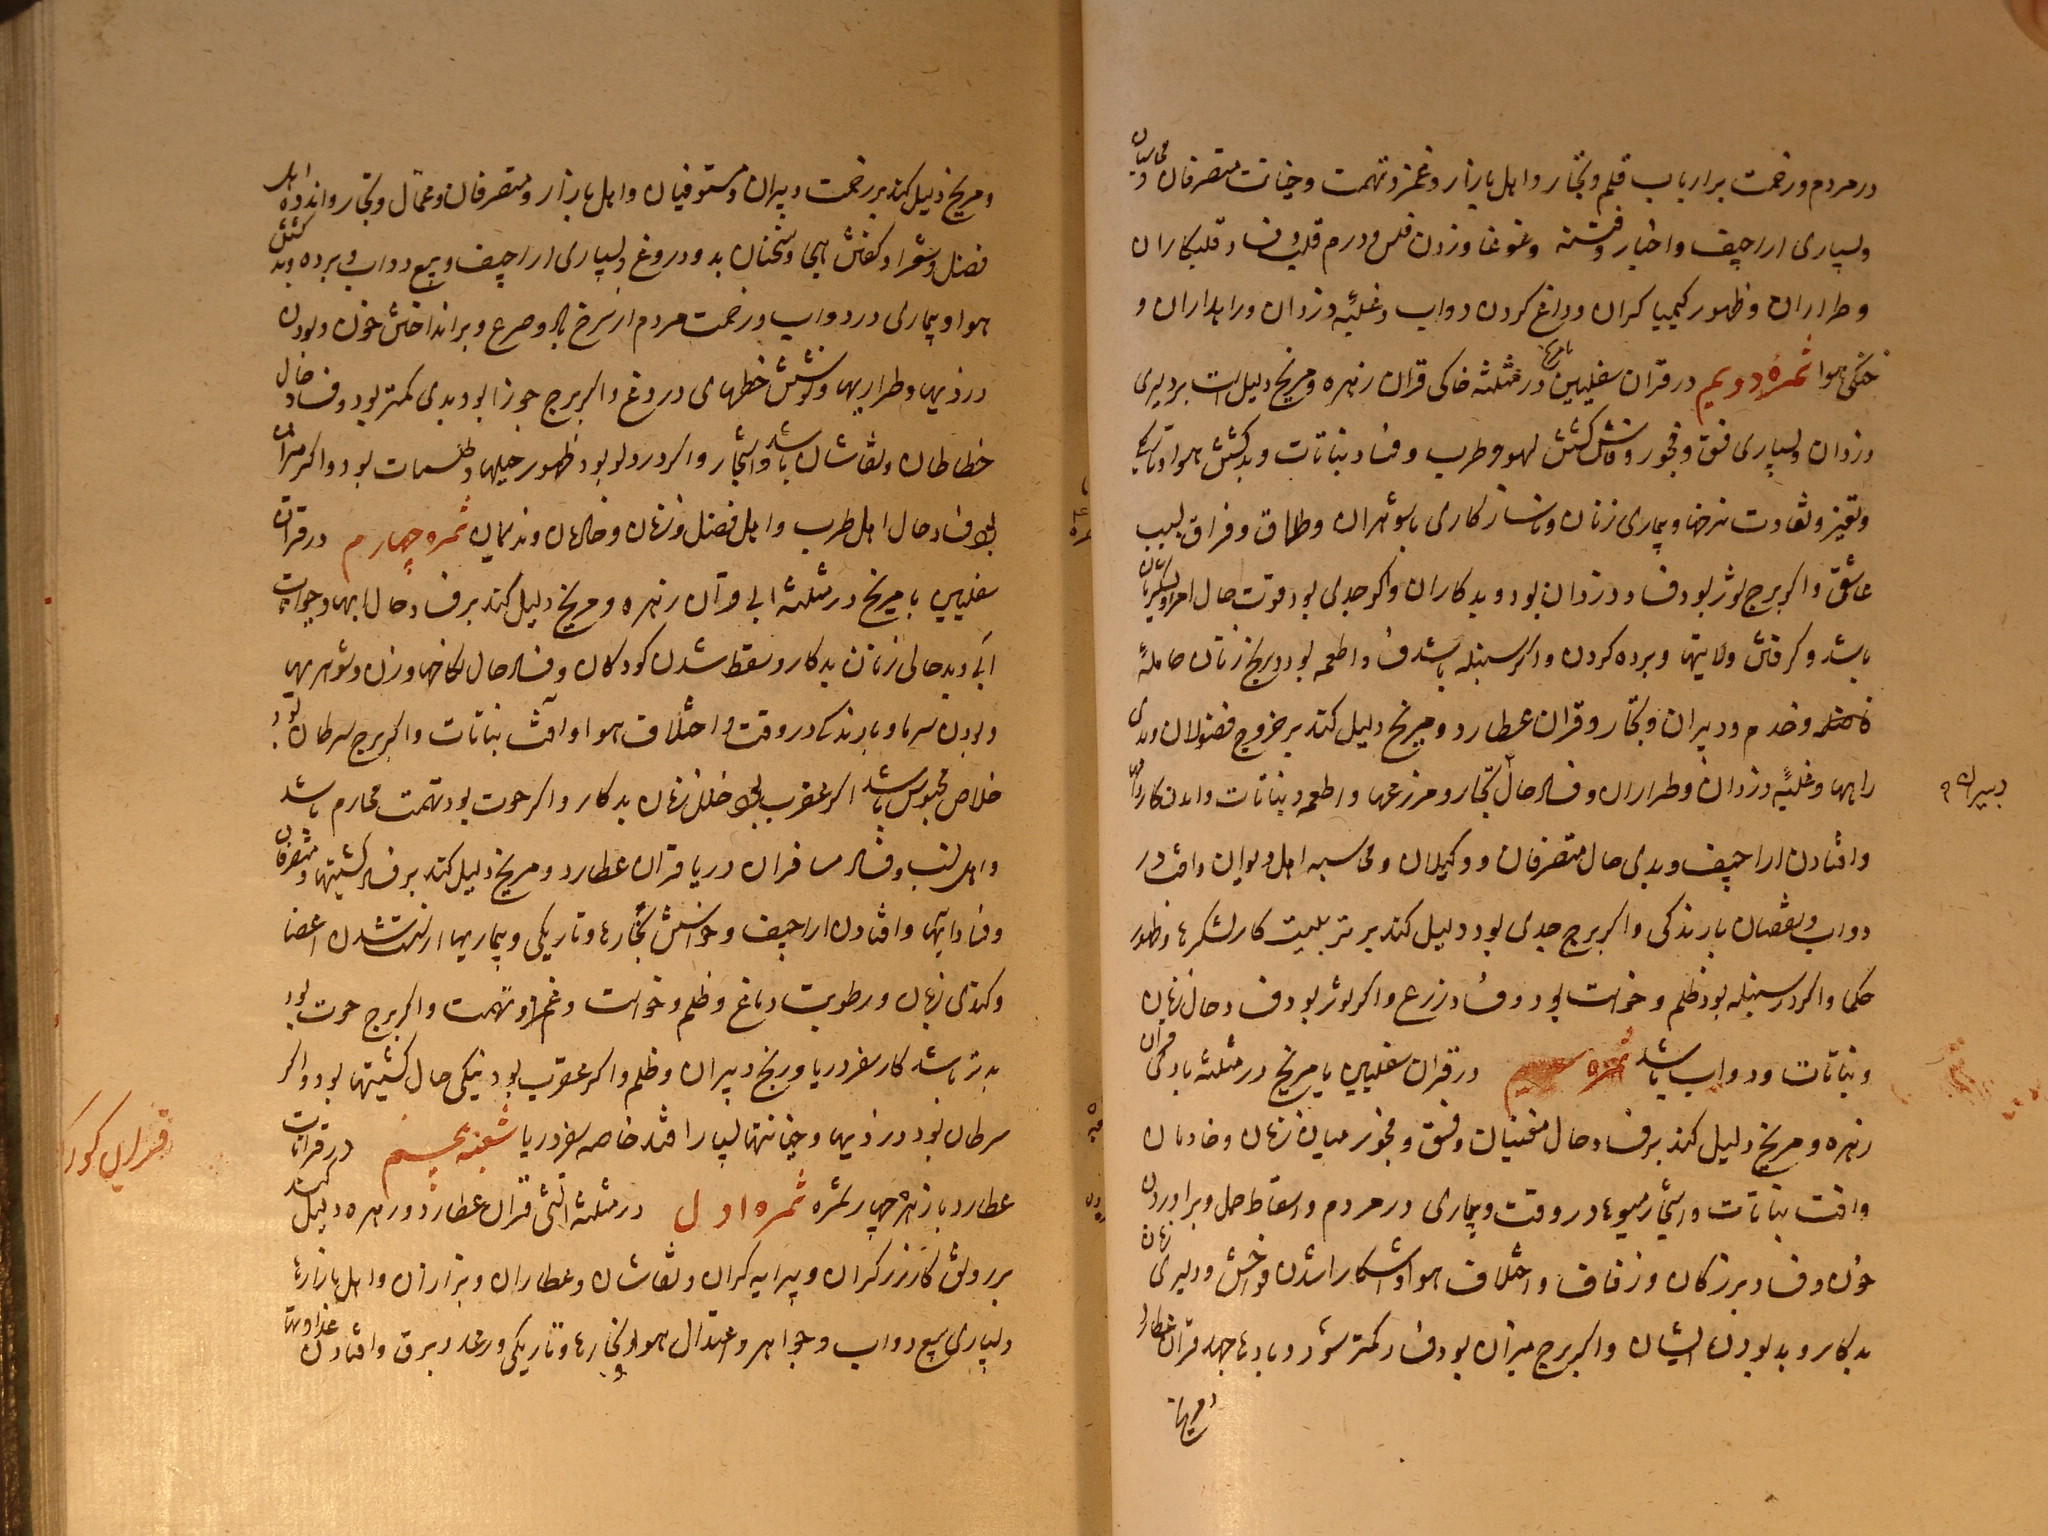 در مردم و زحمت بر ارباب قلم و تجار و اهل بازار و غمز و تهمت و خیانت متصرفان و محاسبان
و بسیاری اراجیف و اخبار و فتنه و غوغا و زدن فلس و درم قلب و فساد قلبکاران
و طراران و ظهور کیمیا کران و داغ کردن دواب و غلبهٔ دزدان و راهداران و
خنکی هوا ثمرهٔ دویم در قران سفلیین با مریخ در مثلثه خاکی قران زهره و مریخ دلیل است بر دلیری
دزدان و بسیاری فسق و فجور و فاش کشتن لهو و طرب و فساد نباتات و بد کشتن هوا و تاریکی
و تغیر و تفاوت نرخها و بیماری زنان و ناسازکاری با شوهران و طلاق و فراق بسبب
عاشق و اکر برج ثور بود فساد دزدان بود و بدکاران و اکر جدی بود قوت حال امرا و لشکریان
باشد و کرفتن ولایتها و برده کردن و اکر سنبله باشد فساد اطعمه بود و رنج زنان حامله
و خدم و دبیران و تجار و قران عطارد و مریخ دلیل کند بر خروج فضولان و بدی
راهها و غلبهٔ دزدان و طراران و فساد حال تجار و مزرعها و اطعمه و نباتات
دبیران ؟
و افتادن اراجیف و بدی حال متصرفان و وکیلان و محاسبه اهل دیوان و افت در
دواب و نقصان بارندکی و اکر برج جدی بود دلیل کند بر تربیت کار لشکرها و ظهور
حکما و اکر در سنبله بود ظلم و خواست بود و فساد زرع و اکر ثور بود فساد حال زنان
و نباتات و دواب باشد ثمره سیم در قران سفلیین با مریخ در مثلثه بادی قران
زهره و مریخ دلیل کند بر فساد حال مغنیان و فسق و فجور میان زنان و خادمان
و افت نباتات و اشجار و میوها در وقت و بیماری در مردم و اسقاط حمل و براوردن
خون و فساد بزرکان و زفاف و اختلاف هوا و اشکارا شدن فواحش و دلیری زنان
بدکار و بد بودن ایشان و اکر برج میزان بود فساد کمتر شود و بادها جهد قران عطارد
و مریخ
و مریخ دلیل کند بر زحمت دبیران و مستوفیان و اهل بازار و متصرفان و عمال و تجار و اندوه اهل
فضل و شعرا و کفتن هجا و سخنان بد و دروغ و بسیاری اراجیف و بیع دواب و برده و بد کشتن
هوا و بیماری در دواب و زحمت مردم از سرخ باد و صرع و برانداختن خون و بودن
دزدیها و طراریها و نوشتن خطهای دروغ و اکر برج جوزا بود بدی کمتر بود و فساد حال
خطاطان و نقاشان باشد و اشجار و اکر در دلو بود ظهور حیلها و طلسمات بود و اکر میزان
بود فساد حال اهل طرب و اهل فضل و زنان و خادمان و ندیمان ثمره چهارم در قران
سفلیین با مریخ در مثلثه ابی قران زهره و مریخ دلیل کند بر فساد حال ابها و حیوانات
آبی و بد حالی زنان بدکار و سقط شدن کودکان و فساد حال نکاحها و زن و شوهریها
و بودن سرما و بارندکی در وقت و اختلاف هوا و آفت نباتات و اکر برج سرطان بود
خلاص محبوس باشد اکر عقرب بود خلل زنان بدکار و اکر حوت بود تهمت محارم باشد
و اهل نسب و فساد مسافران دریا قران عطارد و مریخ دلیل کند بر فساد کشتیها و متصرفان
و فساد ابها و افتادن اراجیف و خواستن بخارها و تاریکی و بیماریها از سست شدن اعضا
و کندی زبان و رطوبت دماغ و ظلم و خواست و غمز و تهمت و اکر برج حوت بود
بدتر باشد کار سفر دریا و رنج دبیران و ظلم و اکر عقرب بود نیکی حال کشتیها بود و اکر
سرطان بود دزدیها و خیانتها بسیار افتد خاصه سفر دریا شعبه پنجم در قرانات
عطارد با زهره چهار ثمره ثمره اول در مثلثه اتشی قران عطارد و زهره دلیل کند
بر رونق کار زرکران و پیرایه کران و نقاشان و عطاران و بزازان و اهل بازارها
و بسیاری بیع دواب و جواهر و اعتدال هوا و بخارها و تاریکی و رعد و برق و افتادن عداوتها